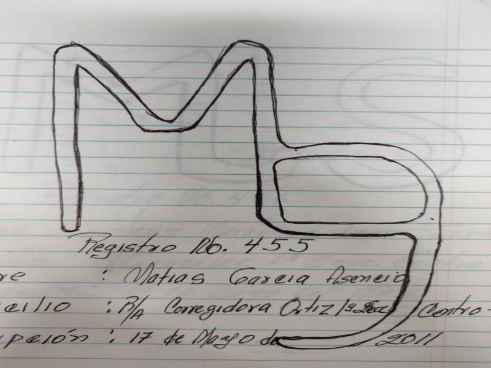 Registro No. 455
re : Matias Garcia Asencio
cilio : R/A Corregidora Ortiz Centro
pción : 17 de Mayo de 2011